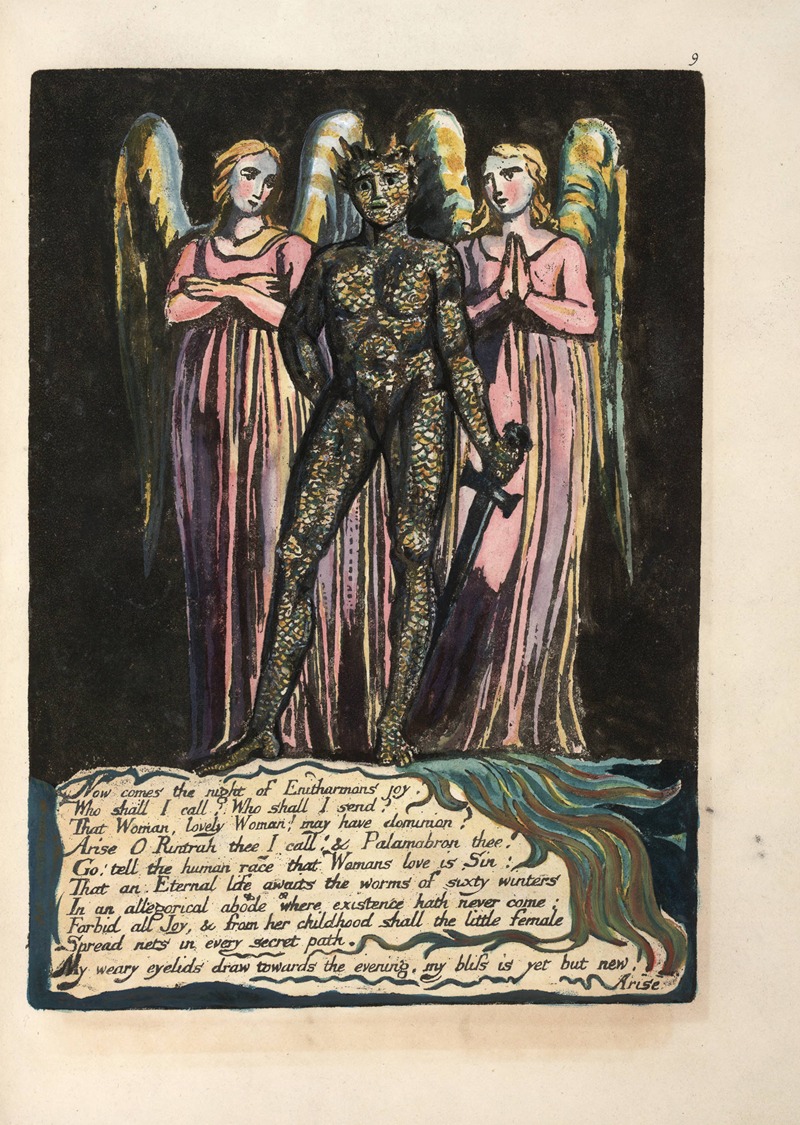 9
Now comes the night of Enitharmons joy.
Who shall I call? Who shall I send?
That Woman, lovely Woman! may have dominion?
Arise O Rintrah thee I call! & Palamabron thee!
Go! tell the human race that Womans love is Sin:
That an Eternal life awaits the worms of sixty winters
In an allegorical abode where existence hath never come:
Forbid all Joy, & from her childhood shall the little female
Spread nets in every secret path.
My weary eyelids draw towards the evening, my bliſs is yet but new.
Arise